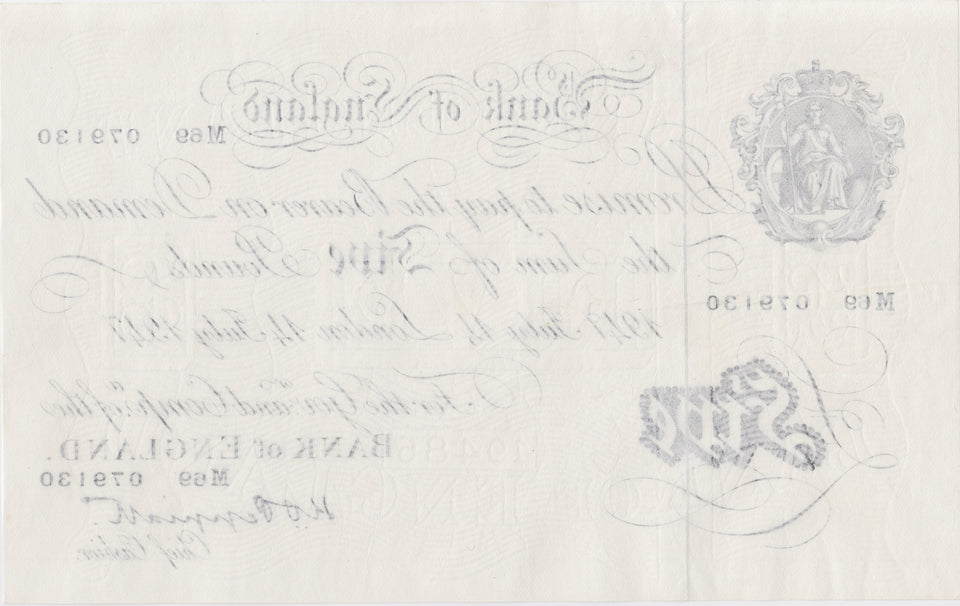 Bank of England
M69 079130
Promise to pay the Bearer on Demand
the Sum of Five Pounds
M69 079130
1947 July 14 London 14 July 1947
For the Govr. and Compa. of the
Five
BANK of ENGLAND.
M69 079130
K.O. Peppiatt
Chief Cashier.